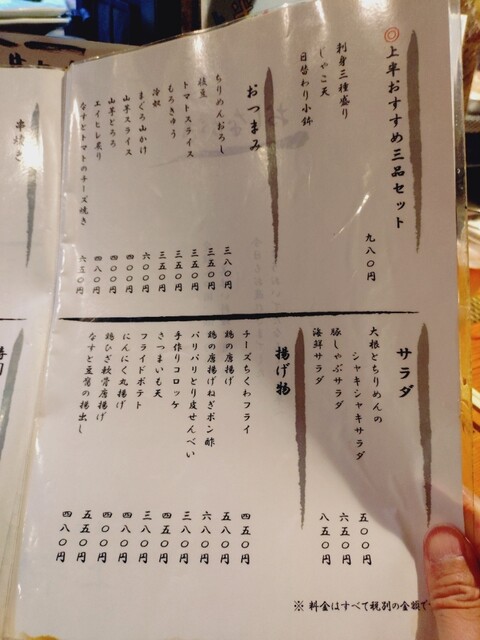 ◎上串おすすめ三品セット
刺身三種盛り
じゃこ天
日替わり小鉢
九八〇円
おつまみ
ちりめんおろし 三八〇円
枝豆 三五〇円
トマトスライス 三五〇円
もろきゅう 三五〇円
冷奴 三五〇円
まぐろ山かけ 六〇〇円
山芋スライス 四〇〇円
山芋とろろ 四〇〇円
エイヒレ炙り 四八〇円
なすとトマトのチーズ焼き 六五〇円
サラダ
大根とちりめんの
シャキシャキサラダ 五〇〇円
豚しゃぶサラダ 六五〇円
海鮮サラダ 八五〇円
揚げ物
チーズちくわフライ 四五〇円
鶏の唐揚げ 五八〇円
鶏の唐揚げねぎポン酢 六八〇円
パリパリとり皮せんべい 四八〇円
手作りコロッケ 四五〇円
さつまいも天 三八〇円
フライドポテト 三八〇円
にんにく丸揚げ 四八〇円
鶏ひざ軟骨唐揚げ 五五〇円
なすと豆腐の揚出し 四八〇円
※ 料金はすべて税別の金額で
串焼き